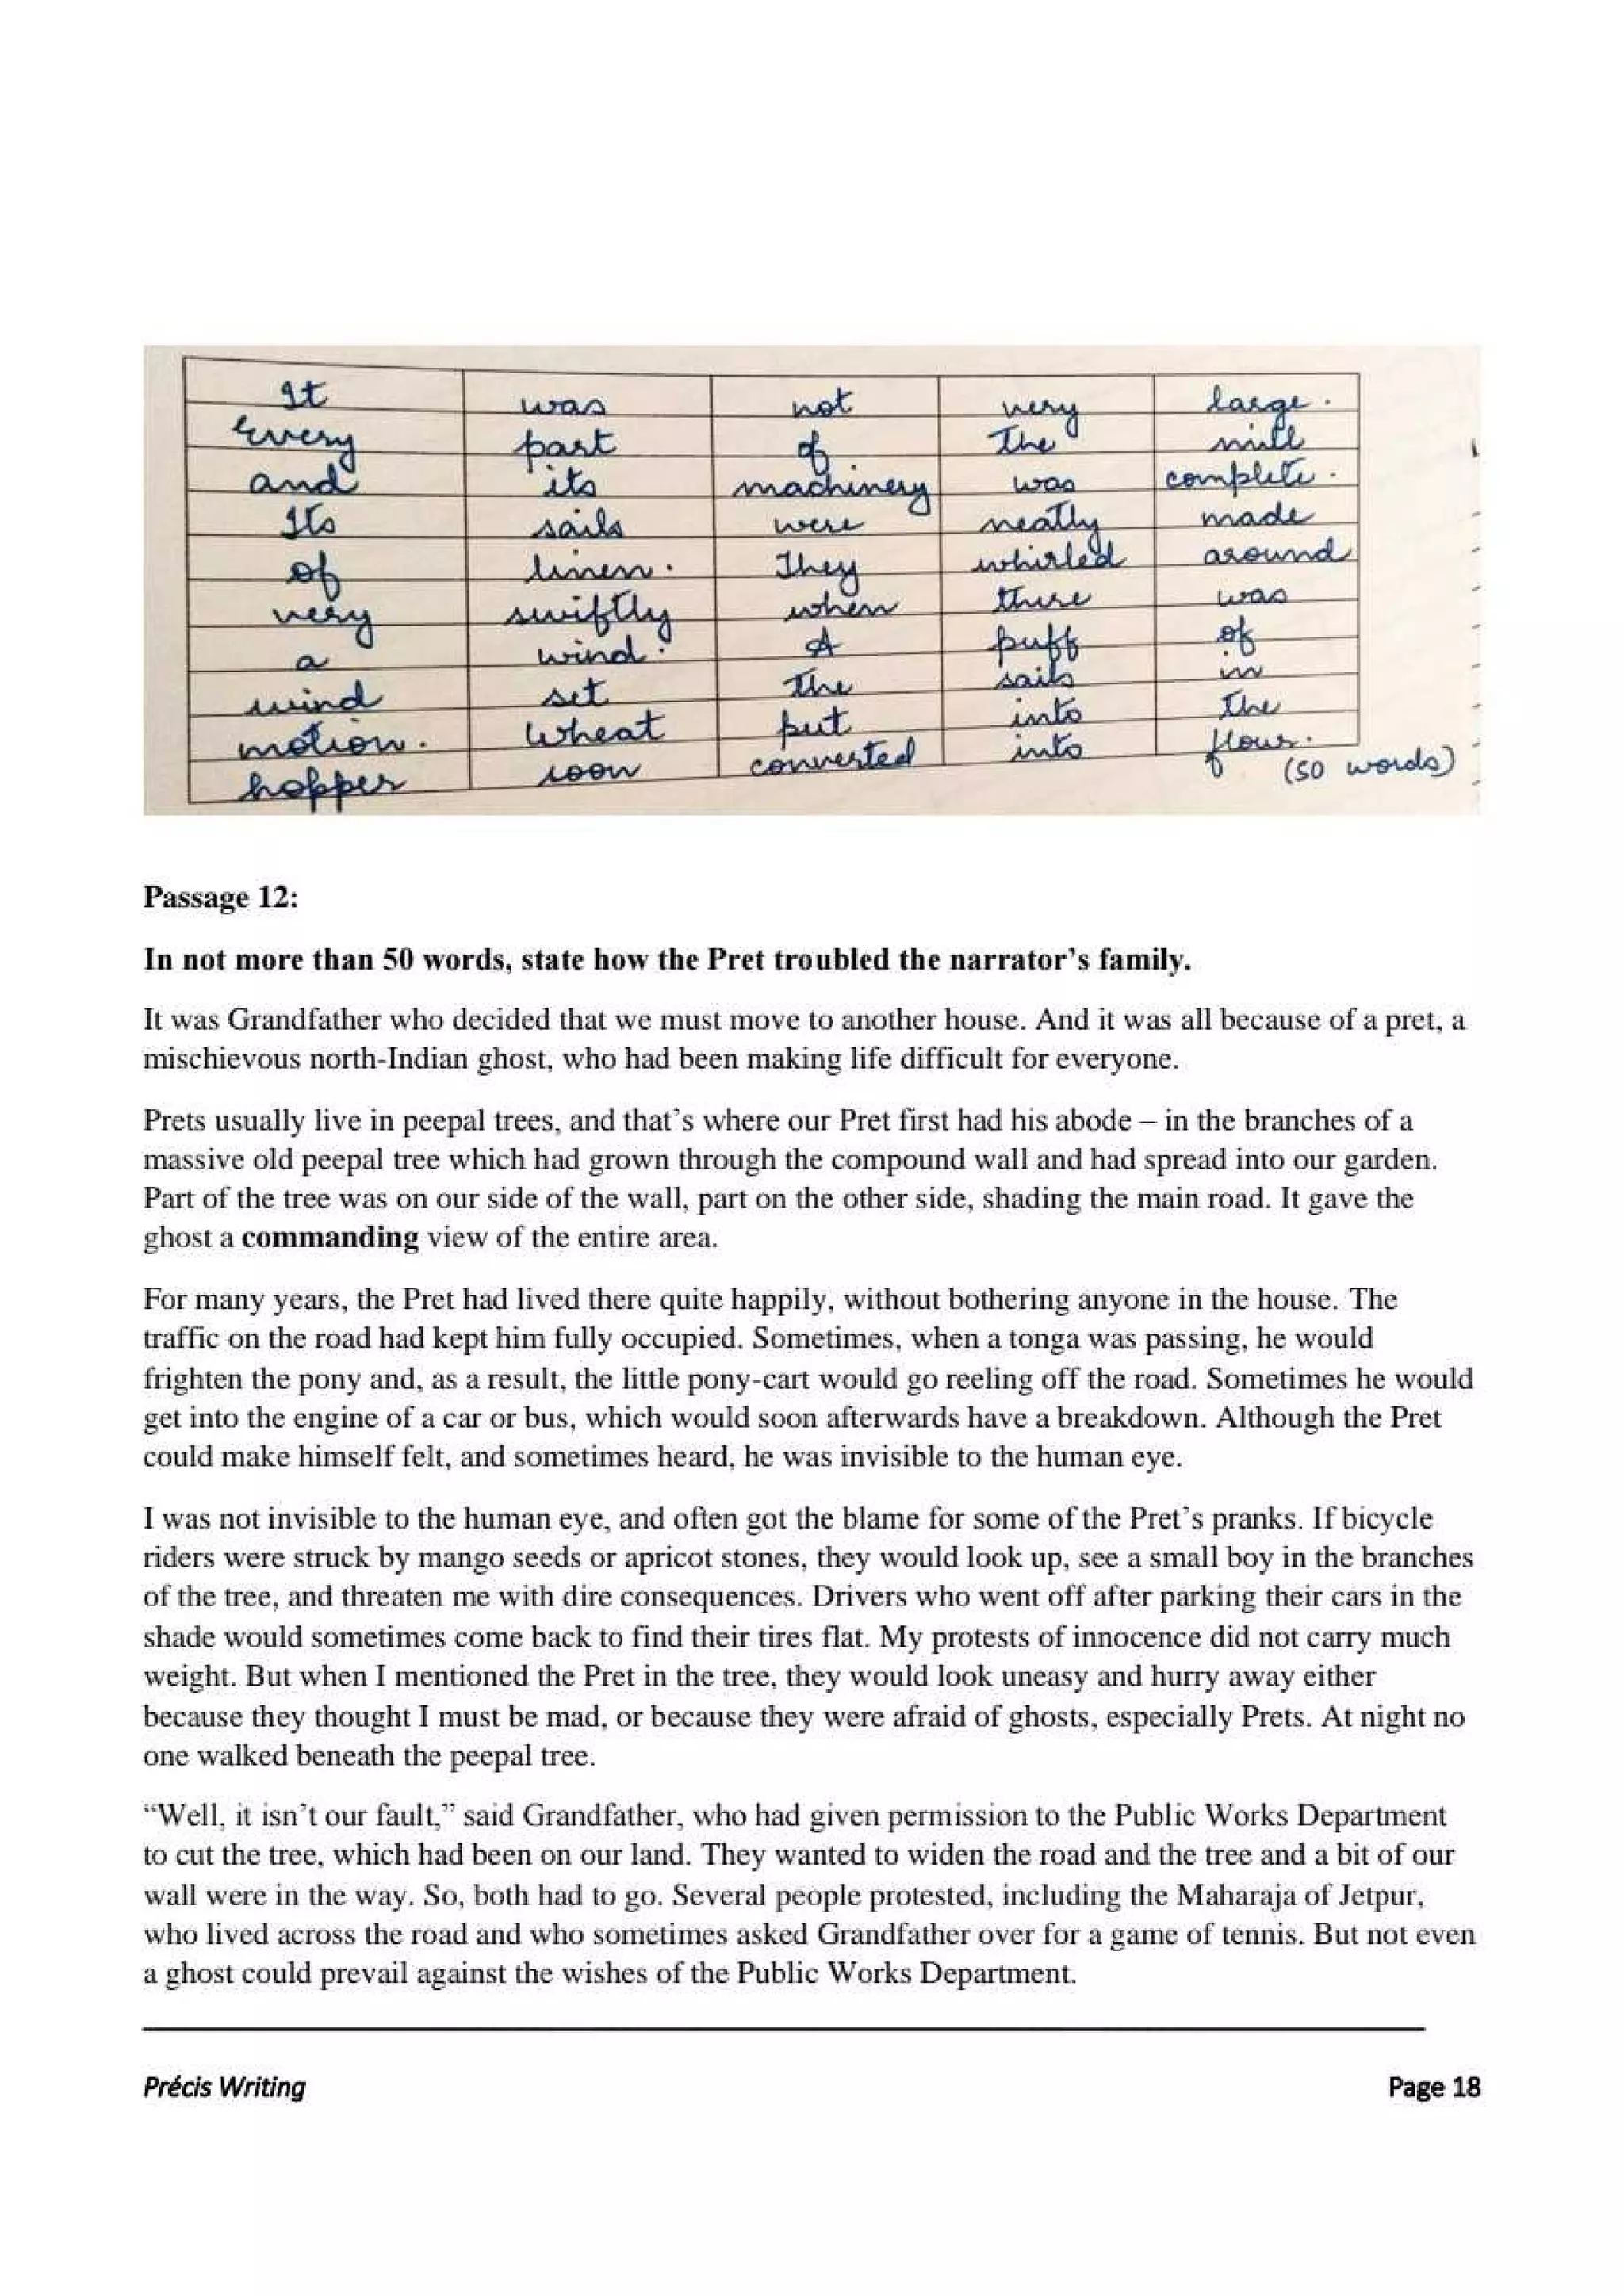 It was not very large.
Every part of the mill
and its machinery was complete.
Its sails were neatly made
of linen. They whirled around
very swiftly when there was
a wind. A puff of
wind set the sails in
motion. Wheat put into the
hopper soon converted into flour.
(50 words)
Passage 12:
In not more than 50 words, state how the Pret troubled the narrator's family.
It was Grandfather who decided that we must move to another house. And it was all because of a pret, a
mischievous north-Indian ghost, who had been making life difficult for everyone.
Prets usually live in peepal trees, and that's where our Pret first had his abode – in the branches of a
massive old peepal tree which had grown through the compound wall and had spread into our garden.
Part of the tree was on our side of the wall, part on the other side, shading the main road. It gave the
ghost a commanding view of the entire area.
For many years, the Pret had lived there quite happily, without bothering anyone in the house. The
traffic on the road had kept him fully occupied. Sometimes, when a tonga was passing, he would
frighten the pony and, as a result, the little pony-cart would go reeling off the road. Sometimes he would
get into the engine of a car or bus, which would soon afterwards have a breakdown. Although the Pret
could make himself felt, and sometimes heard, he was invisible to the human eye.
I was not invisible to the human eye, and often got the blame for some of the Pret's pranks. If bicycle
riders were struck by mango seeds or apricot stones, they would look up, see a small boy in the branches
of the tree, and threaten me with dire consequences. Drivers who went off after parking their cars in the
shade would sometimes come back to find their tires flat. My protests of innocence did not carry much
weight. But when I mentioned the Pret in the tree, they would look uneasy and hurry away either
because they thought I must be mad, or because they were afraid of ghosts, especially Prets. At night no
one walked beneath the peepal tree.
“Well, it isn't our fault,” said Grandfather, who had given permission to the Public Works Department
to cut the tree, which had been on our land. They wanted to widen the road and the tree and a bit of our
wall were in the way. So, both had to go. Several people protested, including the Maharaja of Jetpur,
who lived across the road and who sometimes asked Grandfather over for a game of tennis. But not even
a ghost could prevail against the wishes of the Public Works Department.
Précis Writing Page 18